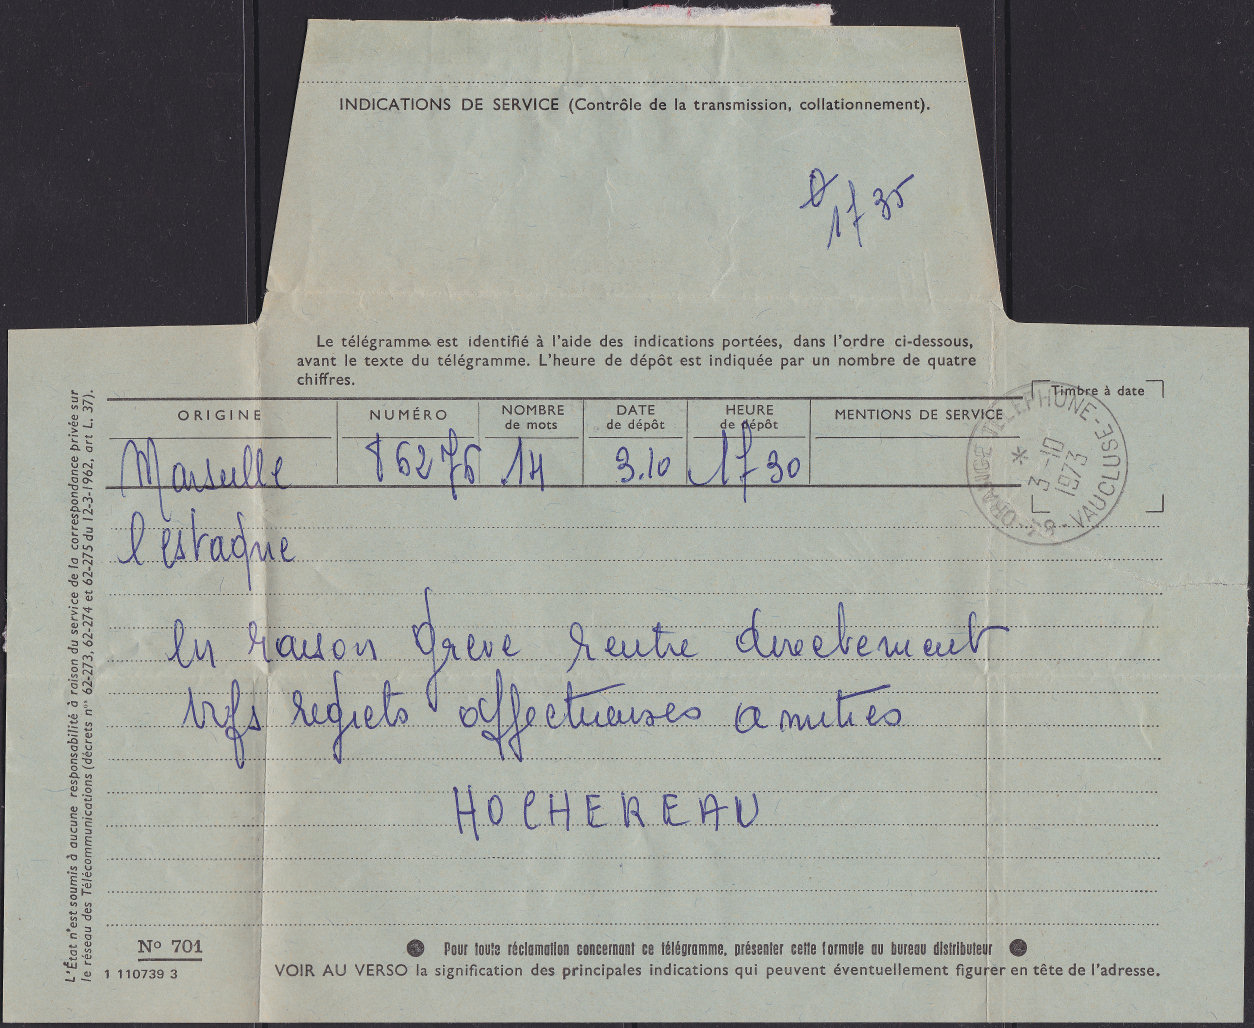 INDICATIONS DE SERVICE (Contrôle de la transmission, collationnement).
17 35
Le télégramme est identifié à l'aide des indications portées, dans l'ordre ci-dessous,
avant le texte du télégramme. L'heure de dépôt est indiquée par un nombre de quatre
chiffres.
Timbre à date
ORIGINE NUMÉRO NOMBRE de mots DATE de dépôt HEURE de dépôt MENTIONS DE SERVICE
Marseille 6276 14 3.10 1730
l'estaque
ORANGE TELEPHONE - VAUCLUSE
3-10
1973
en raison greve rentre directement
vifs regrets affectueuses amities
HOCHEREAU
L'État n'est soumis à aucune responsabilité à raison du service de la correspondance privée sur
le réseau des Télécommunications (décrets nos 62-273, 62-274 et 62-275 du 12-3-1962, art L. 37).
No 701
1 110739 3
Pour toute réclamation concernant ce télégramme, présenter cette formule au bureau distributeur
VOIR AU VERSO la signification des principales indications qui peuvent éventuellement figurer en tête de l'adresse.